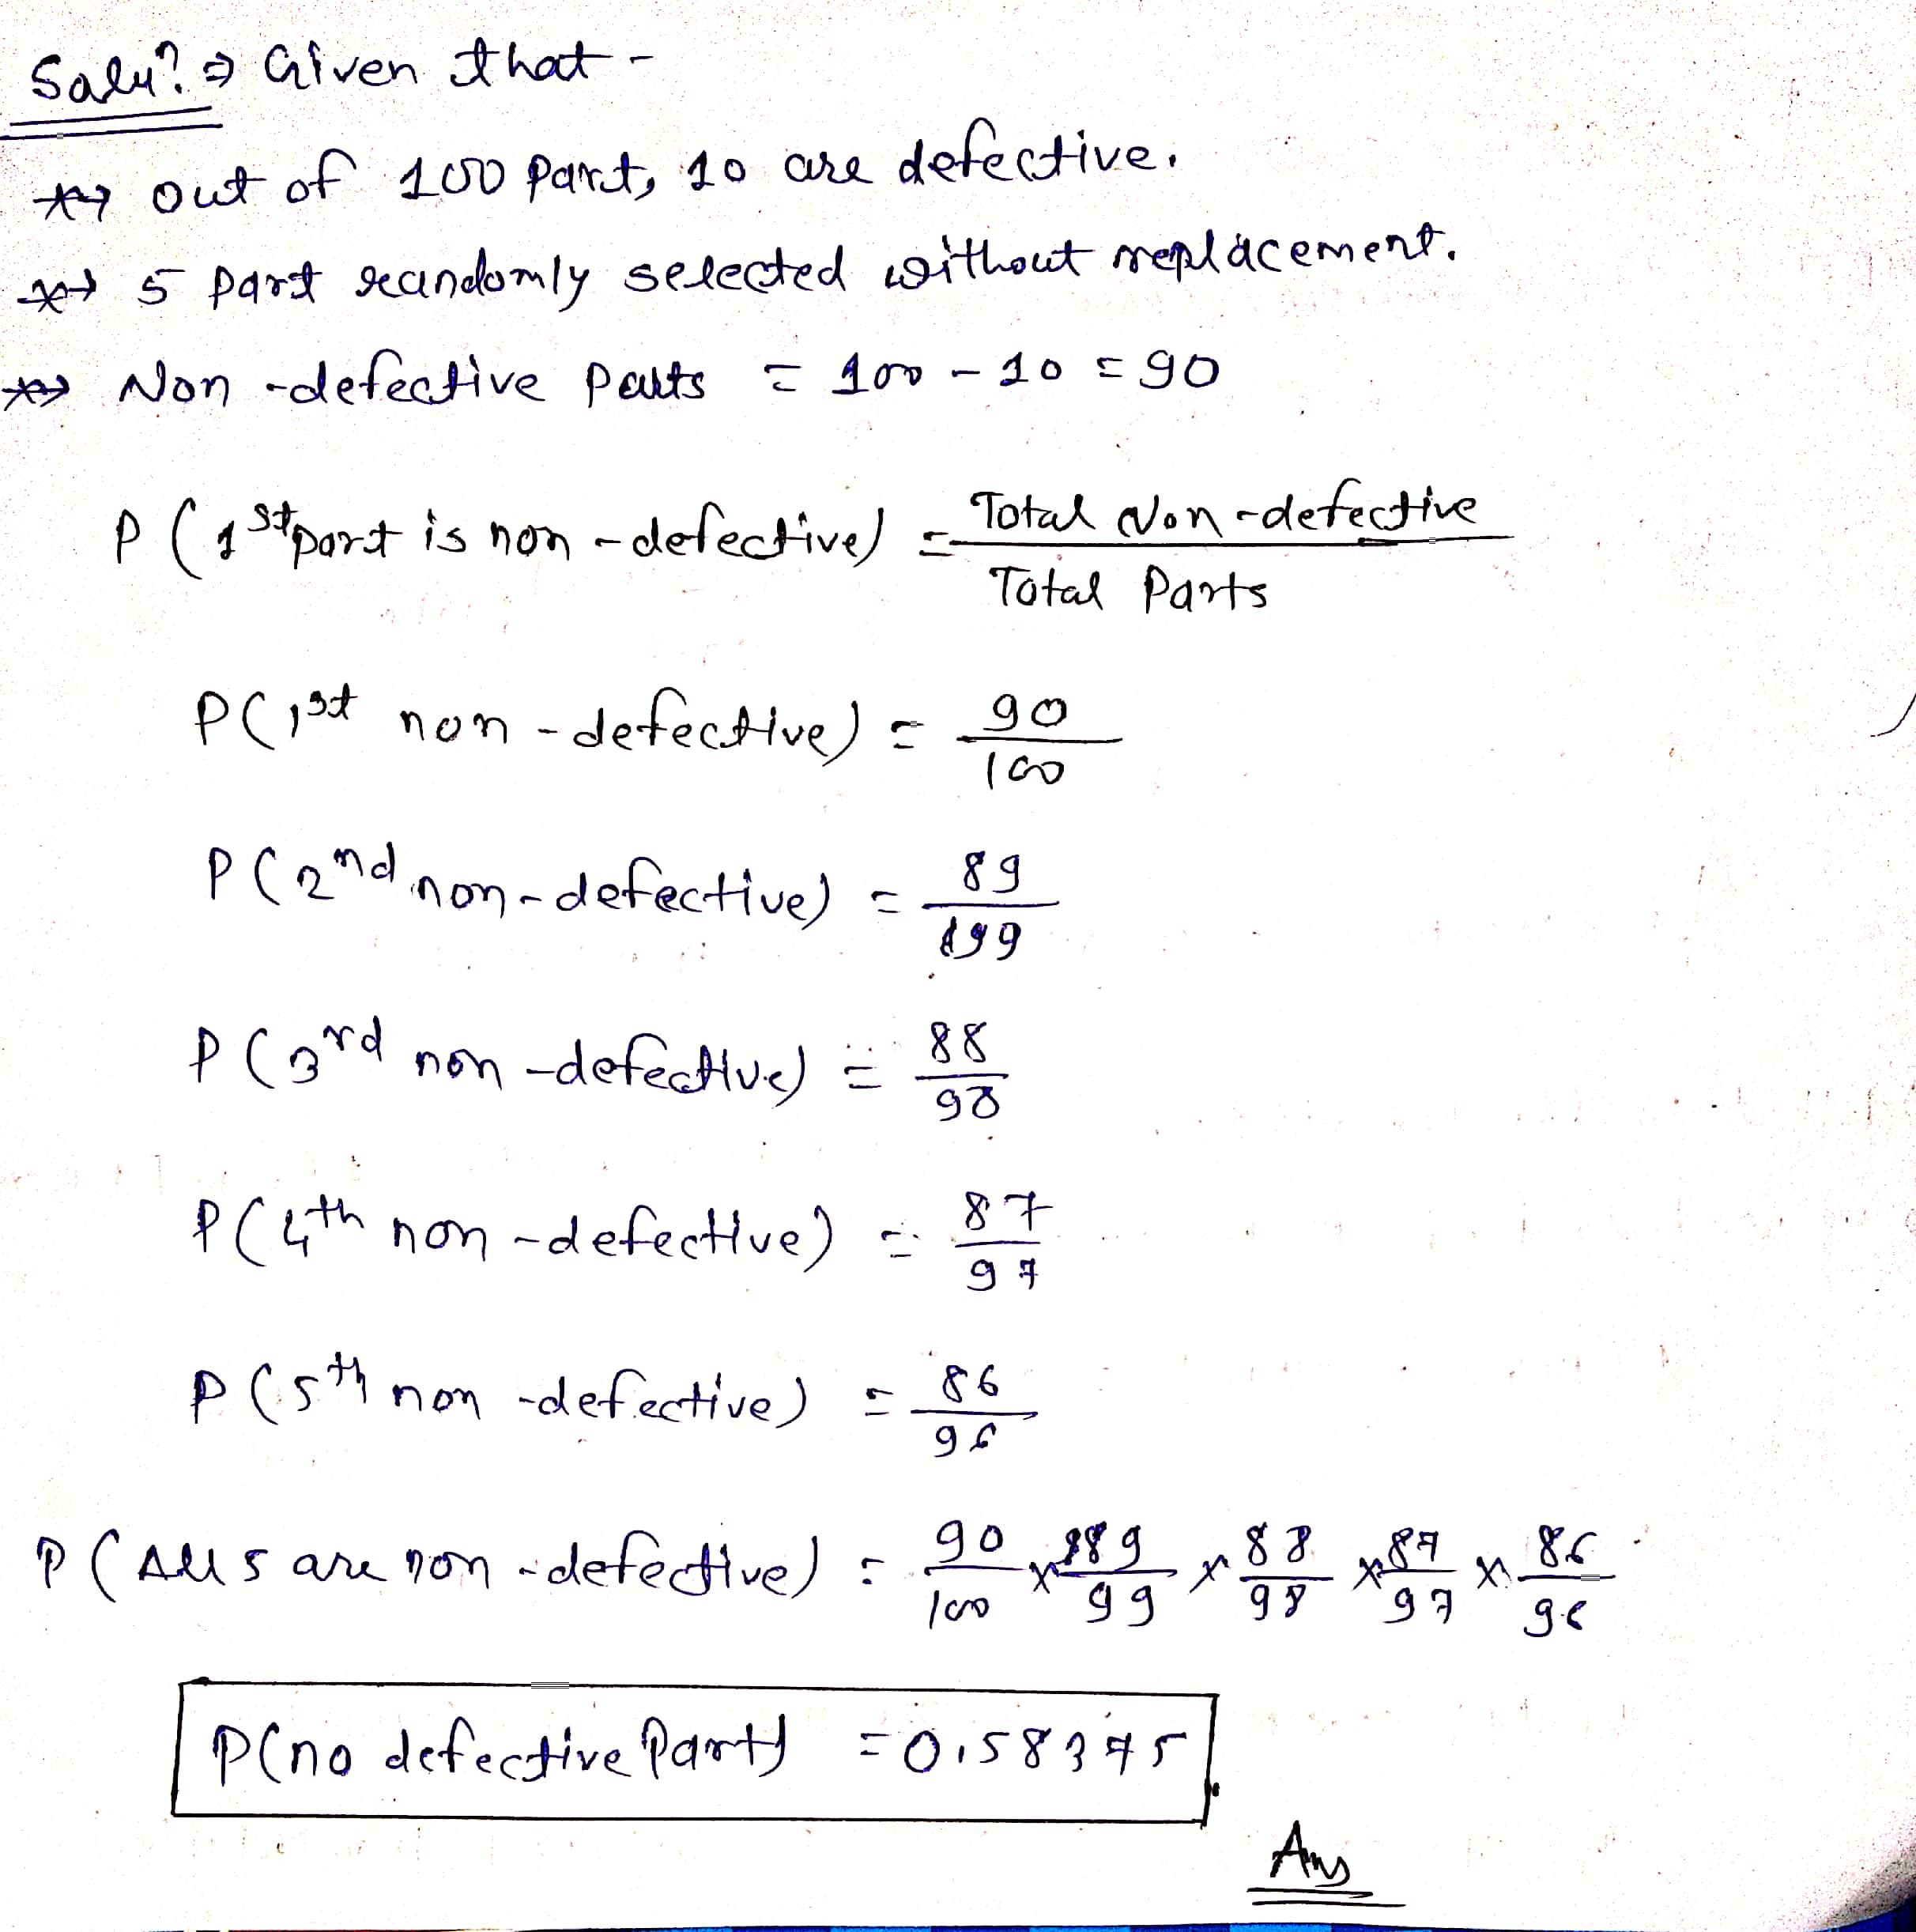 Solu? ⇒ Given that -
out of 100 part, 10 are defective.
5 part randomly selected without replacement.
Non - defective parts = 100 - 10 = 90
P (1st part is non - defective) = Total Non - defective / Total Parts
P(1st non - defective) = 90/100
P(2nd non - defective) = 89/199
P(3rd non - defective) = 88/98
P(4th non - defective) = 87/97
P(5th non - defective) = 86/96
P (All 5 are non - defective) = 90/100 x 889/99 x 88/98 x 87/97 x 86/96
P(no defective Part) = 0.58375
Ans